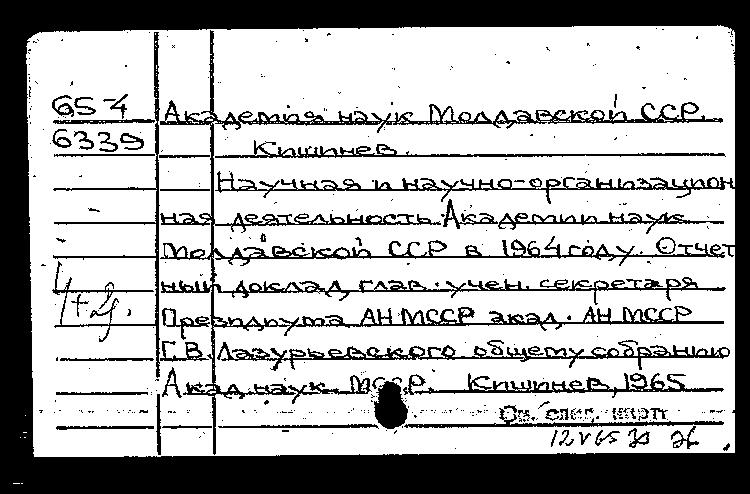 65-4 Академия наук Молдавской ССР.
6339 Кишинев.
Научная и научно-организацион
ная деятельность Академии наук
Молдавской ССР в 1964 году. Отчет
ный доклад глав. учен. секретаря
Президиума АН МССР акад. АН МССР
Г.В. Лазурьевского общему собранию
Акад. наук МССР. Кишинев, 1965
См. след. карт.
12 V 65